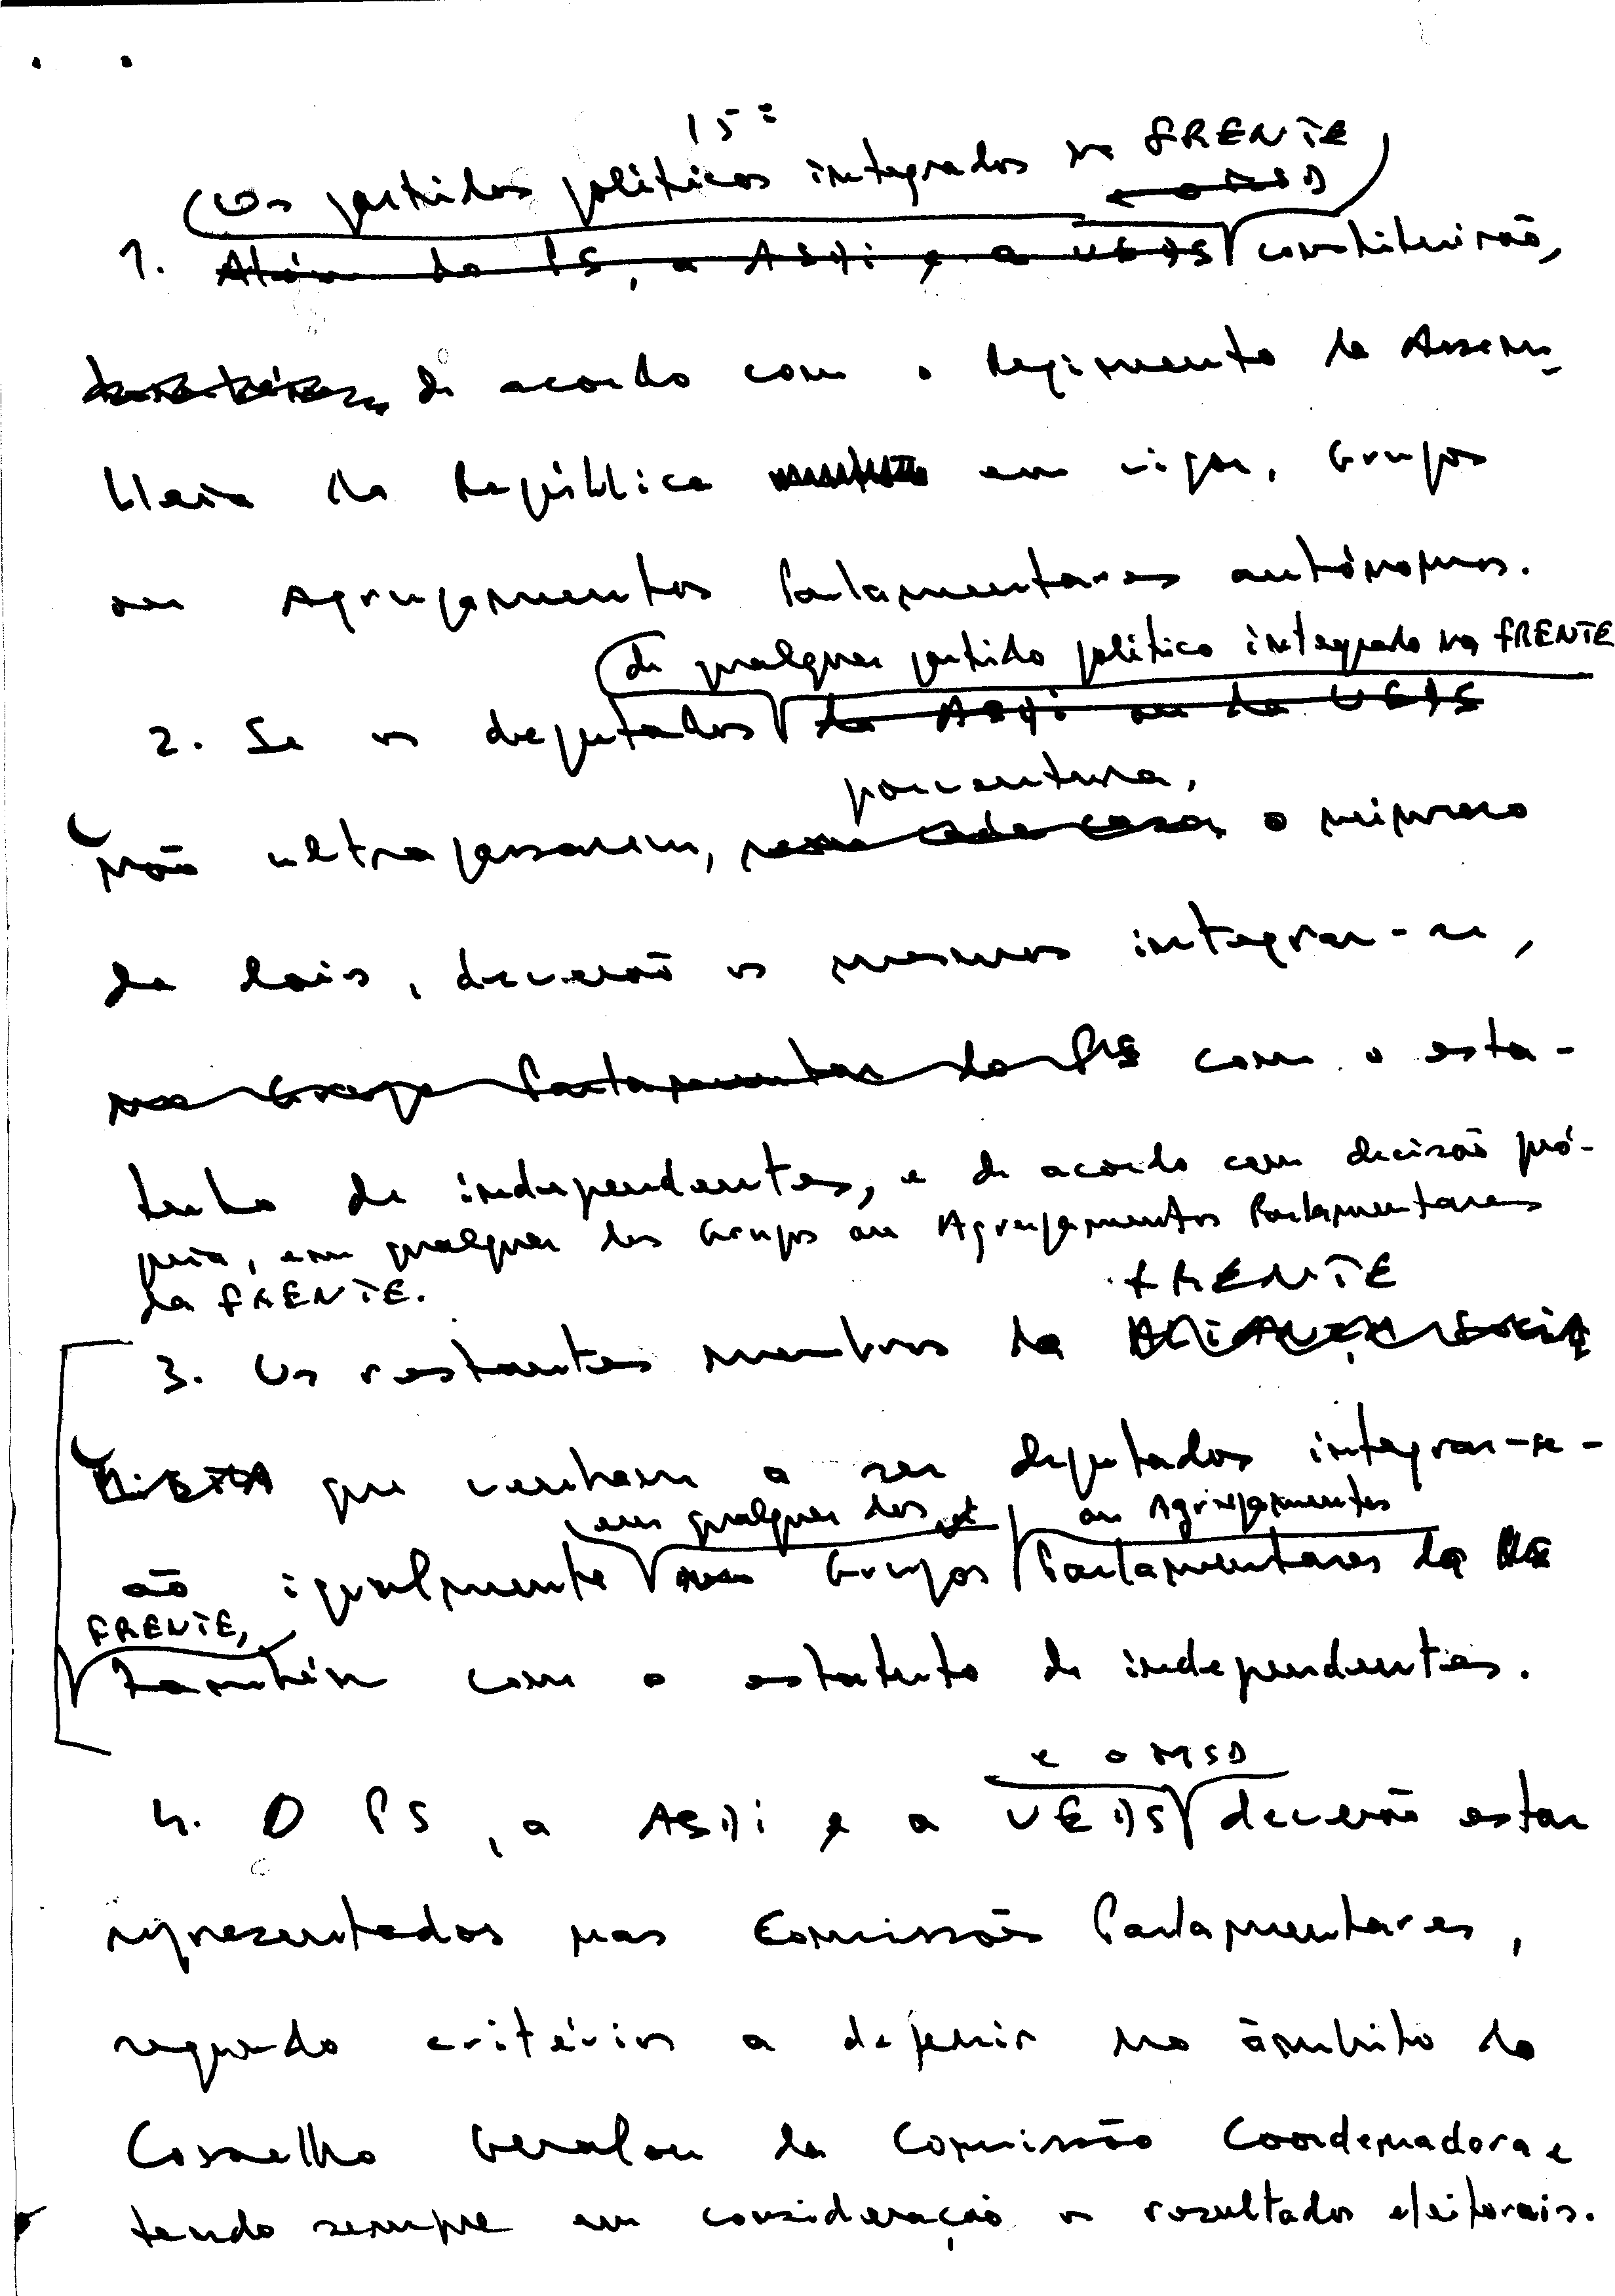 15º
Os partidos políticos integrados na FRENTE
e o MSD
1. Além do PS, a ASDi e a UEDS constituirão,
de acordo com o Regimento da Assem-
bleia da República em vigor, Grupos
ou Agrupamentos Parlamentares autónomos.
de qualquer partido político integrado na FRENTE
2. Se os deputados da ASDi ou da UEDS
porventura,
não ultrapassarem, em cada caso, o número
de dois, deverão os mesmos integrar-se,
no Grupo Parlamentar do PS com o esta-
tuto de independentes, e de acordo com decisão pró-
pria, em qualquer dos Grupos ou Agrupamentos Parlamentares
da FRENTE.
FRENTE
3. Os restantes membros da ALIANÇA SOCIA
LISTA que venham a ser deputados integrar-se-
em qualquer dos ou Agrupamentos
ão igualmente no Grupos Parlamentares da PS
FRENTE,
também com o estatuto de independentes.
e o MSD
4. O PS, a ASDi e a UEDS deverão estar
representados nas Comissões Parlamentares,
segundo critérios a definir no âmbito do
Conselho Geral ou da Comissão Coordenadora e
tendo sempre em consideração os resultados eleitorais.